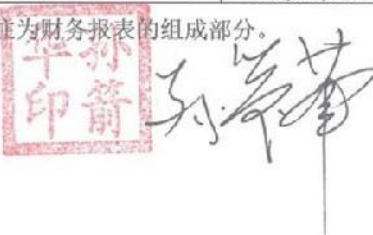 注为财务报表的组成部分。
孙箭
华印